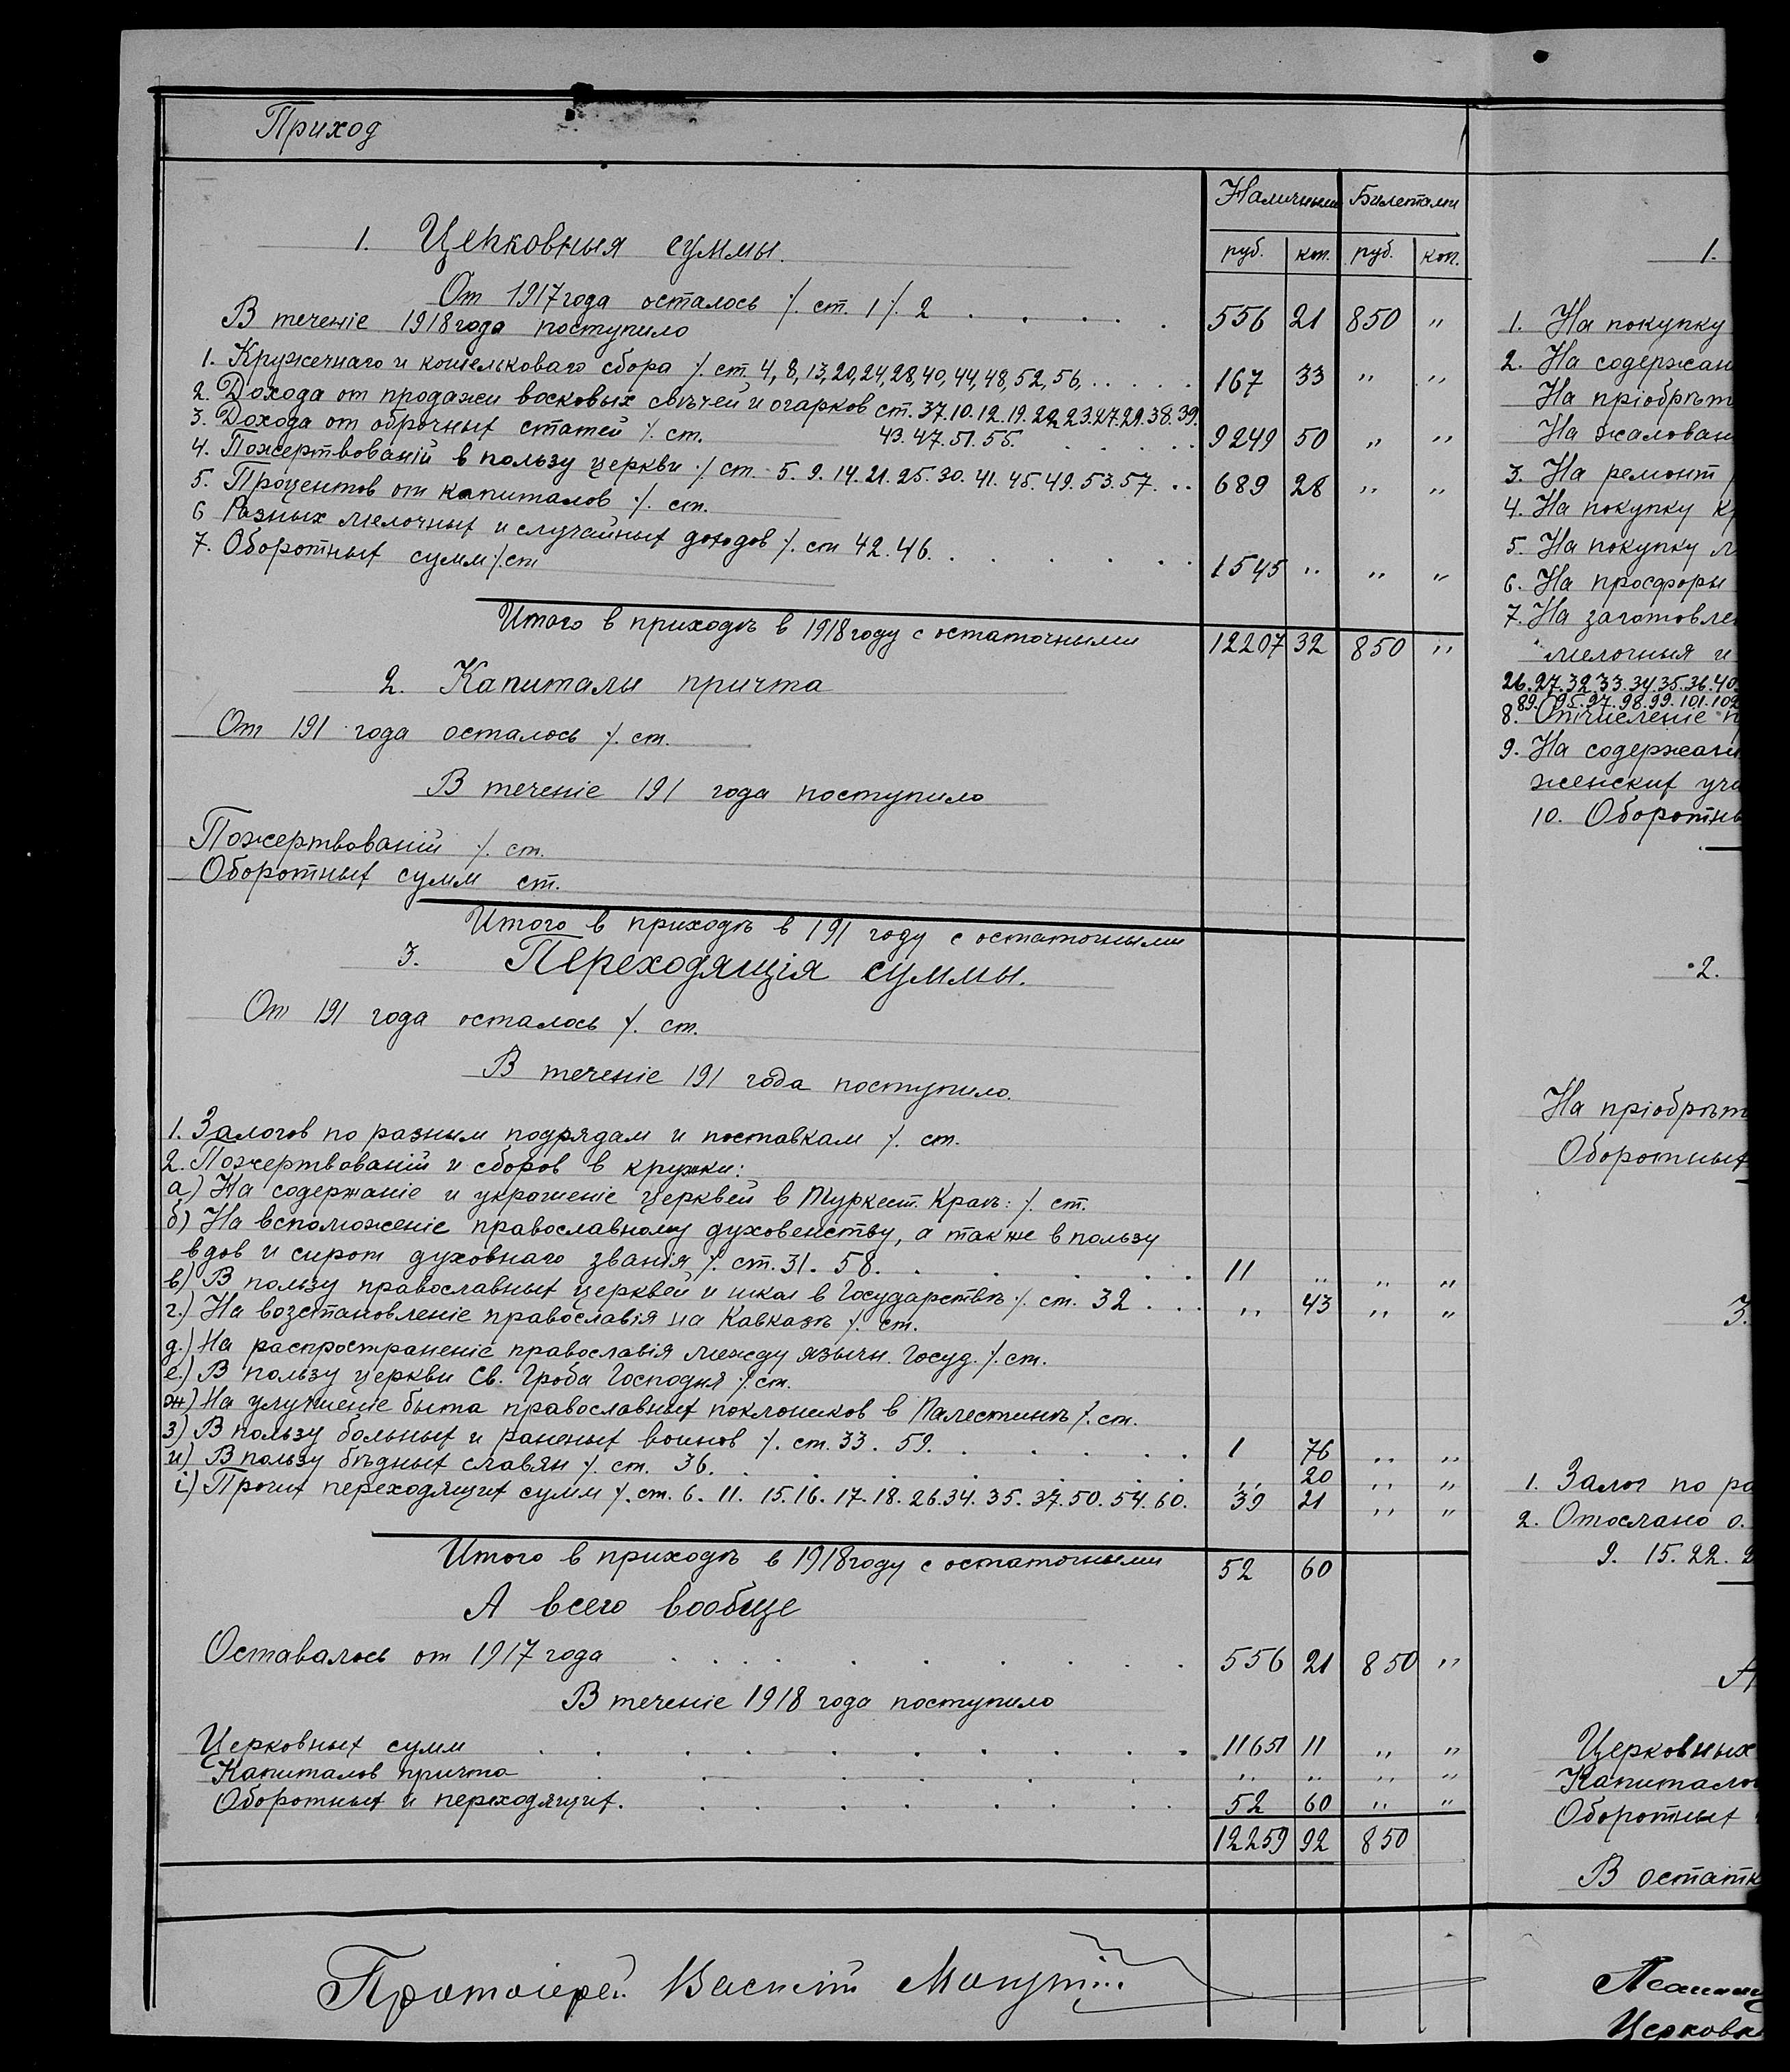 Приход
Наличными Билетами
руб. коп. руб. коп.
1. Церковныя суммы.
От 1917 года осталось ./. ст. 1 ./. 2 . . . . . 556 21 850 "
В теченіе 1918 года поступило
1. Кружечнаго и кошельковаго сбора ./. ст. 4, 8, 13, 20, 24, 28, 40, 44, 48, 52, 56. . . . . . 167 33 " "
2. Дохода от продажи восковых свѣчей и огарков ст. 37.10.12.19.22.23.27.29.38.39.
43.47.51.55. . . . . 9249 50 " "
3. Дохода от оброчных статей ./. ст.
4. Пожертвованій в пользу церкви ./. ст. 5. 9. 14. 21. 25. 30. 41. 45. 49. 53. 57. . . 689 28 " "
5. Процентов от капиталов ./. ст.
6 Разных мелочных и случайных доходов ./. ст 42. 46. . . . . . . 1545 " " "
7. Оборотных сумм ./. ст
Итого в приходѣ в 1918 году с остаточными 12207 32 850 "
2. Капиталы причта
От 191 года осталось ./. ст.
В теченіе 191 года поступило
Пожертвованій ./. ст.
Оборотных сумм ст.
Итого в приходѣ в 191 году с остаточными
3. Переходящія суммы.
От 191 года осталось ./. ст.
В теченіе 191 года поступило.
1. Залогов по разным подрядам и поставкам ./. ст.
2. Пожертвованій и сборов в кружки:
а) На содержаніе и украшеніе церквей в Туркест. Краѣ: ./. ст.
б) На вспоможеніе православному духовенству, а также в пользу
вдов и сирот духовнаго званія ./. ст. 31. 58. . . . . . 11 " " "
в) В пользу православных церквей и школ в Государствѣ ./. ст. 32 . . . " 43 " "
г.) На возстановленіе православія на Кавказѣ ./. ст.
д.) На распространеніе православія между язычн. Госуд. ./. ст.
е.) В пользу церкви Св. Гроба Господня ./. ст.
ж) На улучшеніе быта православных поклоников в Палестинѣ ./. ст.
з) В пользу больных и раненых воинов ./. ст. 33. 59. . . . . . 1 76 " "
и) В пользу бѣдных славян ./. ст. 36. . . . . . . . " 20 " "
і) Прочих переходящих сумм ./. ст. 6. 11. 15. 16. 17. 18. 26. 34. 35. 37. 50. 54. 60. 39 21 " "
Итого в приходѣ в 1918 году с остаточными 52 60
А всего вообще
Оставалось от 1917 года . . . . . . . . . 556 21 850 "
В теченіе 1918 года поступило
Церковных сумм . . . . . . . . . . 11651 11 " "
Капиталов причта . . . . . . " " " "
Оборотных и переходящих. . . . . . . . 52 60 " "
12259 92 850
Протоіерей Василій
1.
1. На покупку
2. На содержан
На пріобрѣт
На жалован
3. На ремонт
4. На покупку к
5. На покупку
6. На просфоры
7. На заготовле
мелочныя и
26. 27. 32. 33. 34. 35. 36. 40.
89. 95. 97. 98. 99. 101. 102
8. Отчисленіе
9. На содержані
женских учи
10. Оборотны
2.
На пріобрѣт
Оборотных
3.
1. Залог по ра
2. Отослано о.
9. 15. 22. 2
А
Церковных
Капитало
Оборотных
В остатк
Церковн